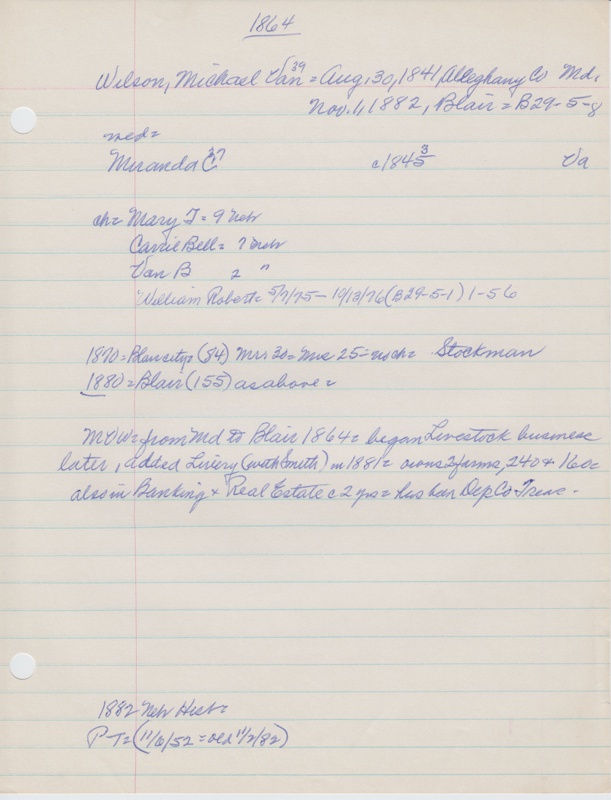 1864
Wilson, Michael Van 39 = Aug, 30, 1841, Alleghany Co Md,
Nov. 1, 1882, Blair = B29-5-8
med=
Miranda C 37 c1845 3 Va
ch= Mary J = 9 Neb
Carrie Bell = 7 Neb
Van B 2 "
William Robert = 5/7/75 - 10/13/76 (B29-5-1) 1-5-6
1870 = Blair city = (84) 30 = 25 = no ch = Stockman
1880 = Blair (155) as above =
MVW = from Md to Blair 1864 = began Livestock business
later, added Livery (with Smith) in 1881 = owns 2 farms, 240 + 160 =
also in Banking + Real Estate c 2 yrs = has ban Dep Co Treas -
1882 Neb Hist =
P-T = (11/6/52 = old 11/2/82)